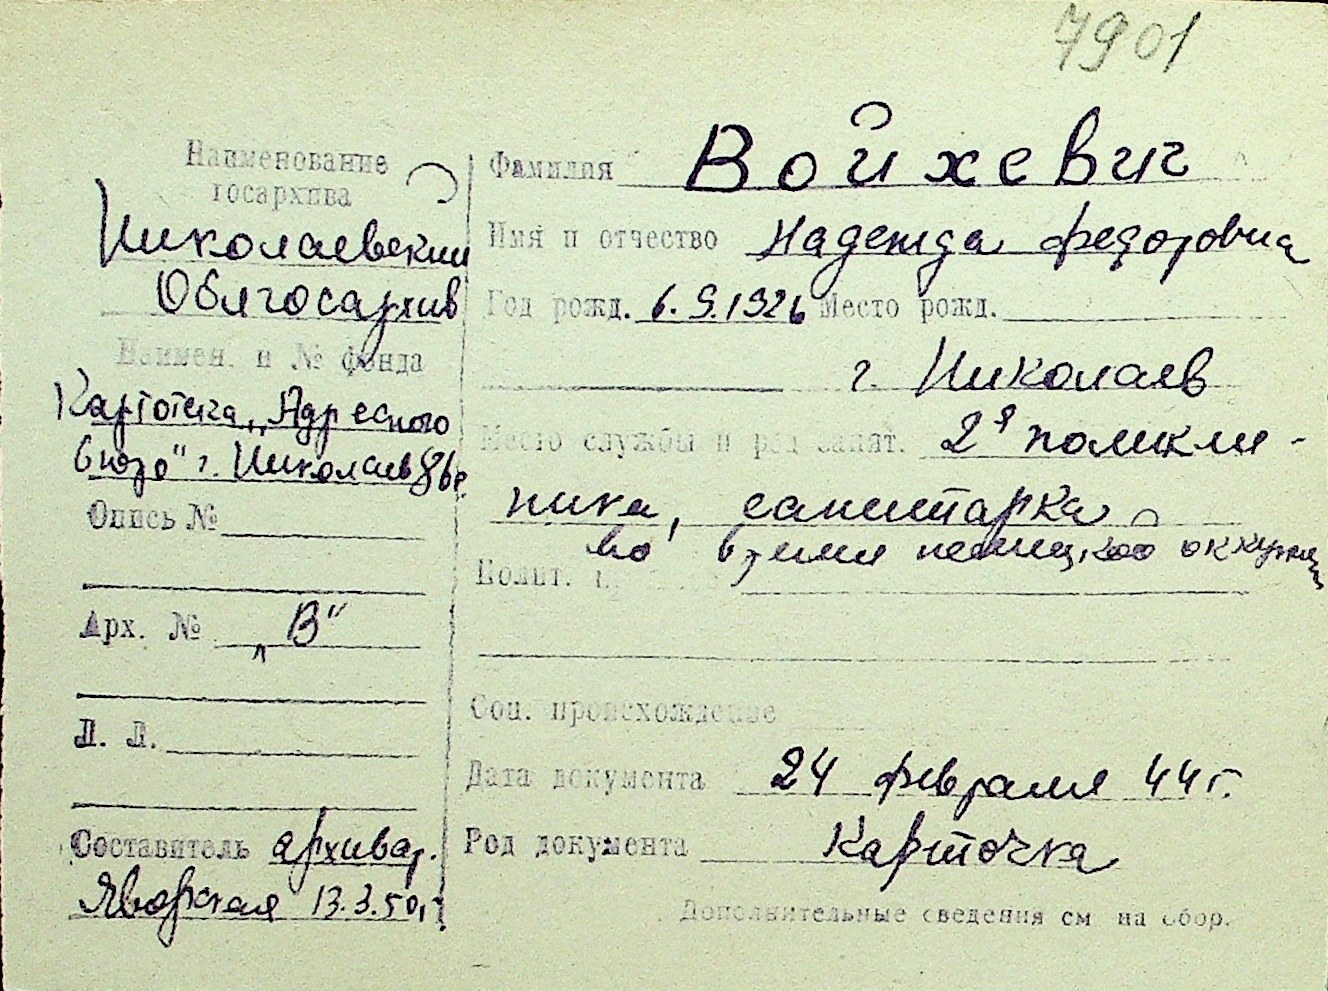 7901
Наименование
госархива
Николаевский
Облгосархив
Наимен. и № фонда
Картотека „Адресного
бюро" г. Николаев
Опись №
Арх. № „В"
Л. Л.
Составитель архивар.
Яворская 13.3.50 г.
Фамилия Войхевич
Имя и отчество Надежда Федоровна
Год рожд. 6.9.1926 Место рожд.
г. Николаев
Место службы и род занят. 2я поликли-
ника, санитарка
во время немецкой оккупации
Полит.
Соц. происхождение
Дата документа 24 февраля 44 г.
Род документа Карточка
Дополнительные сведения см на обор.